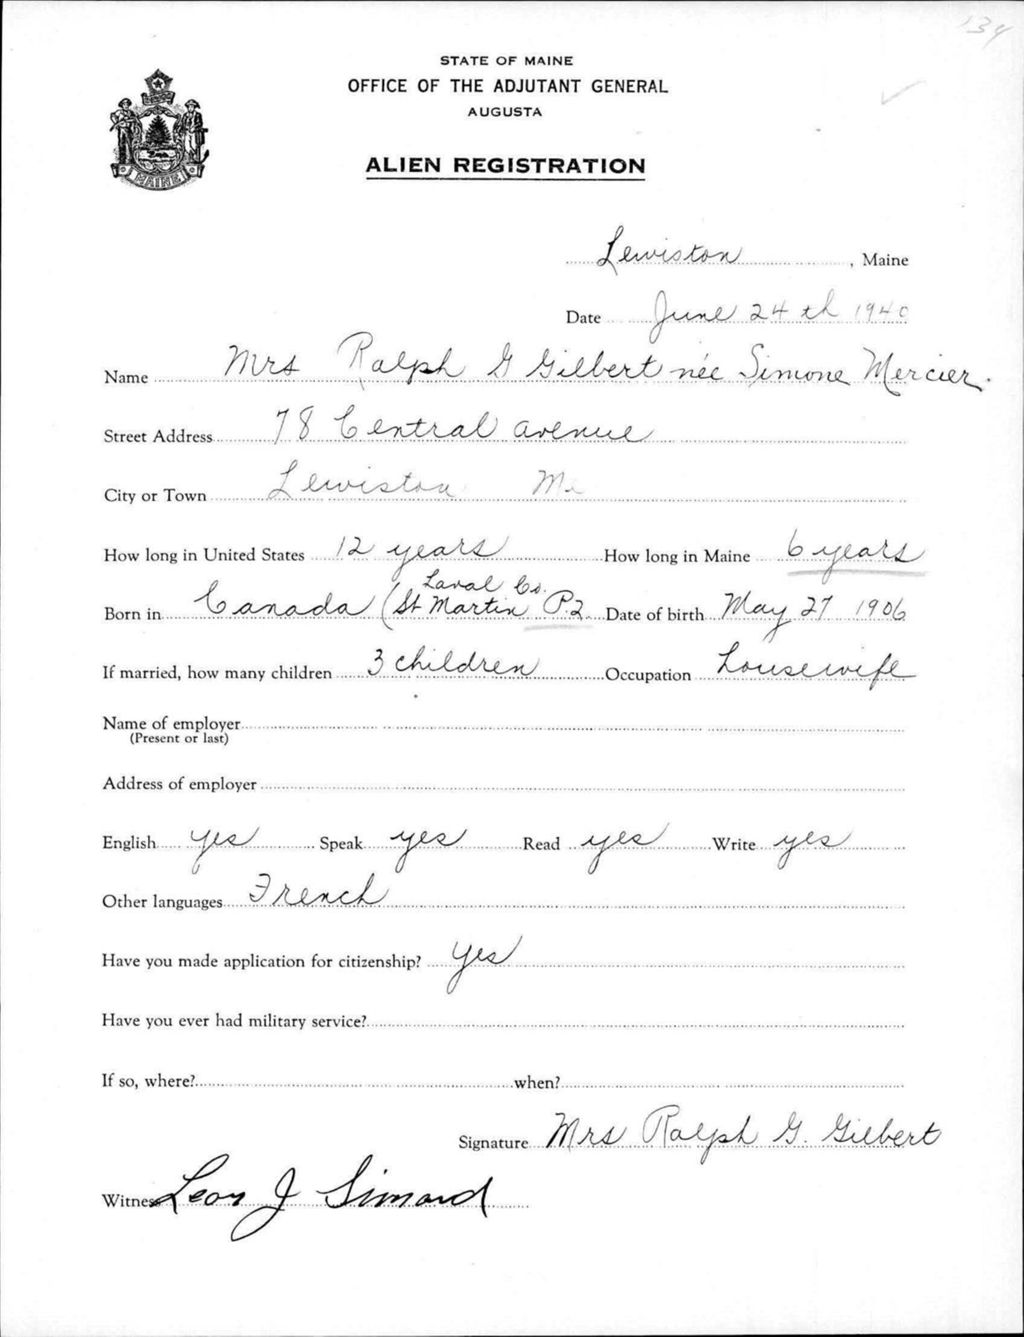 134
STATE OF MAINE
OFFICE OF THE ADJUTANT GENERAL
AUGUSTA
MAINE
ALIEN REGISTRATION
Lewiston, Maine
Date June 24th 1940
Name Mrs Ralph G Gilbert née Simone Mercier.
Street Address 78 Central avenue
City or Town Lewiston Me
How long in United States 12 years How long in Maine 6 years
Laval Co.
Born in Canada (St Martin P.2. Date of birth May 27 1906
If married, how many children 3 children Occupation housewife
Name of employer
(Present or last)
Address of employer
English yes Speak yes Read yes Write yes
Other languages French
Have you made application for citizenship? yes
Have you ever had military service?
If so, where? when?
Signature Mrs Ralph G. Gilbert
Witness Leon J Simard